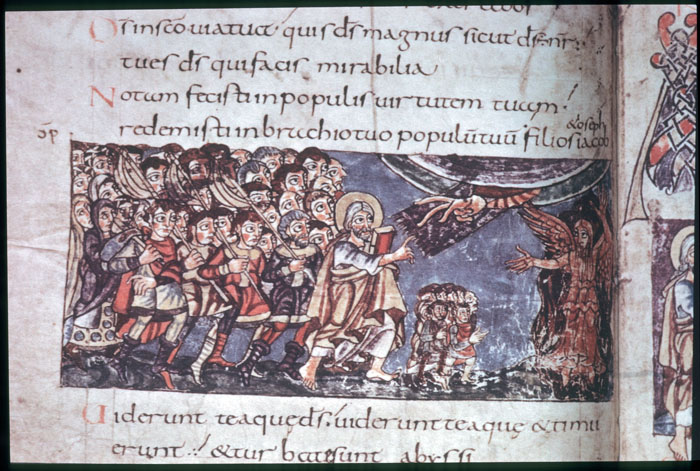 Dſinſcoviatuct quiſ dſ magnuſ ſicut dſ: noſ
tueſ dſ quifaciſ mirabilia
Notum feciſti inpopuliſ virtutem tuam!
redemiſti inbrachiotuo populūtuū filioſ iacob
&ioſeph
Uiderunt teaquędſ: uiderunt teaquę &timu
erunt &tur batęſunt abyſſi